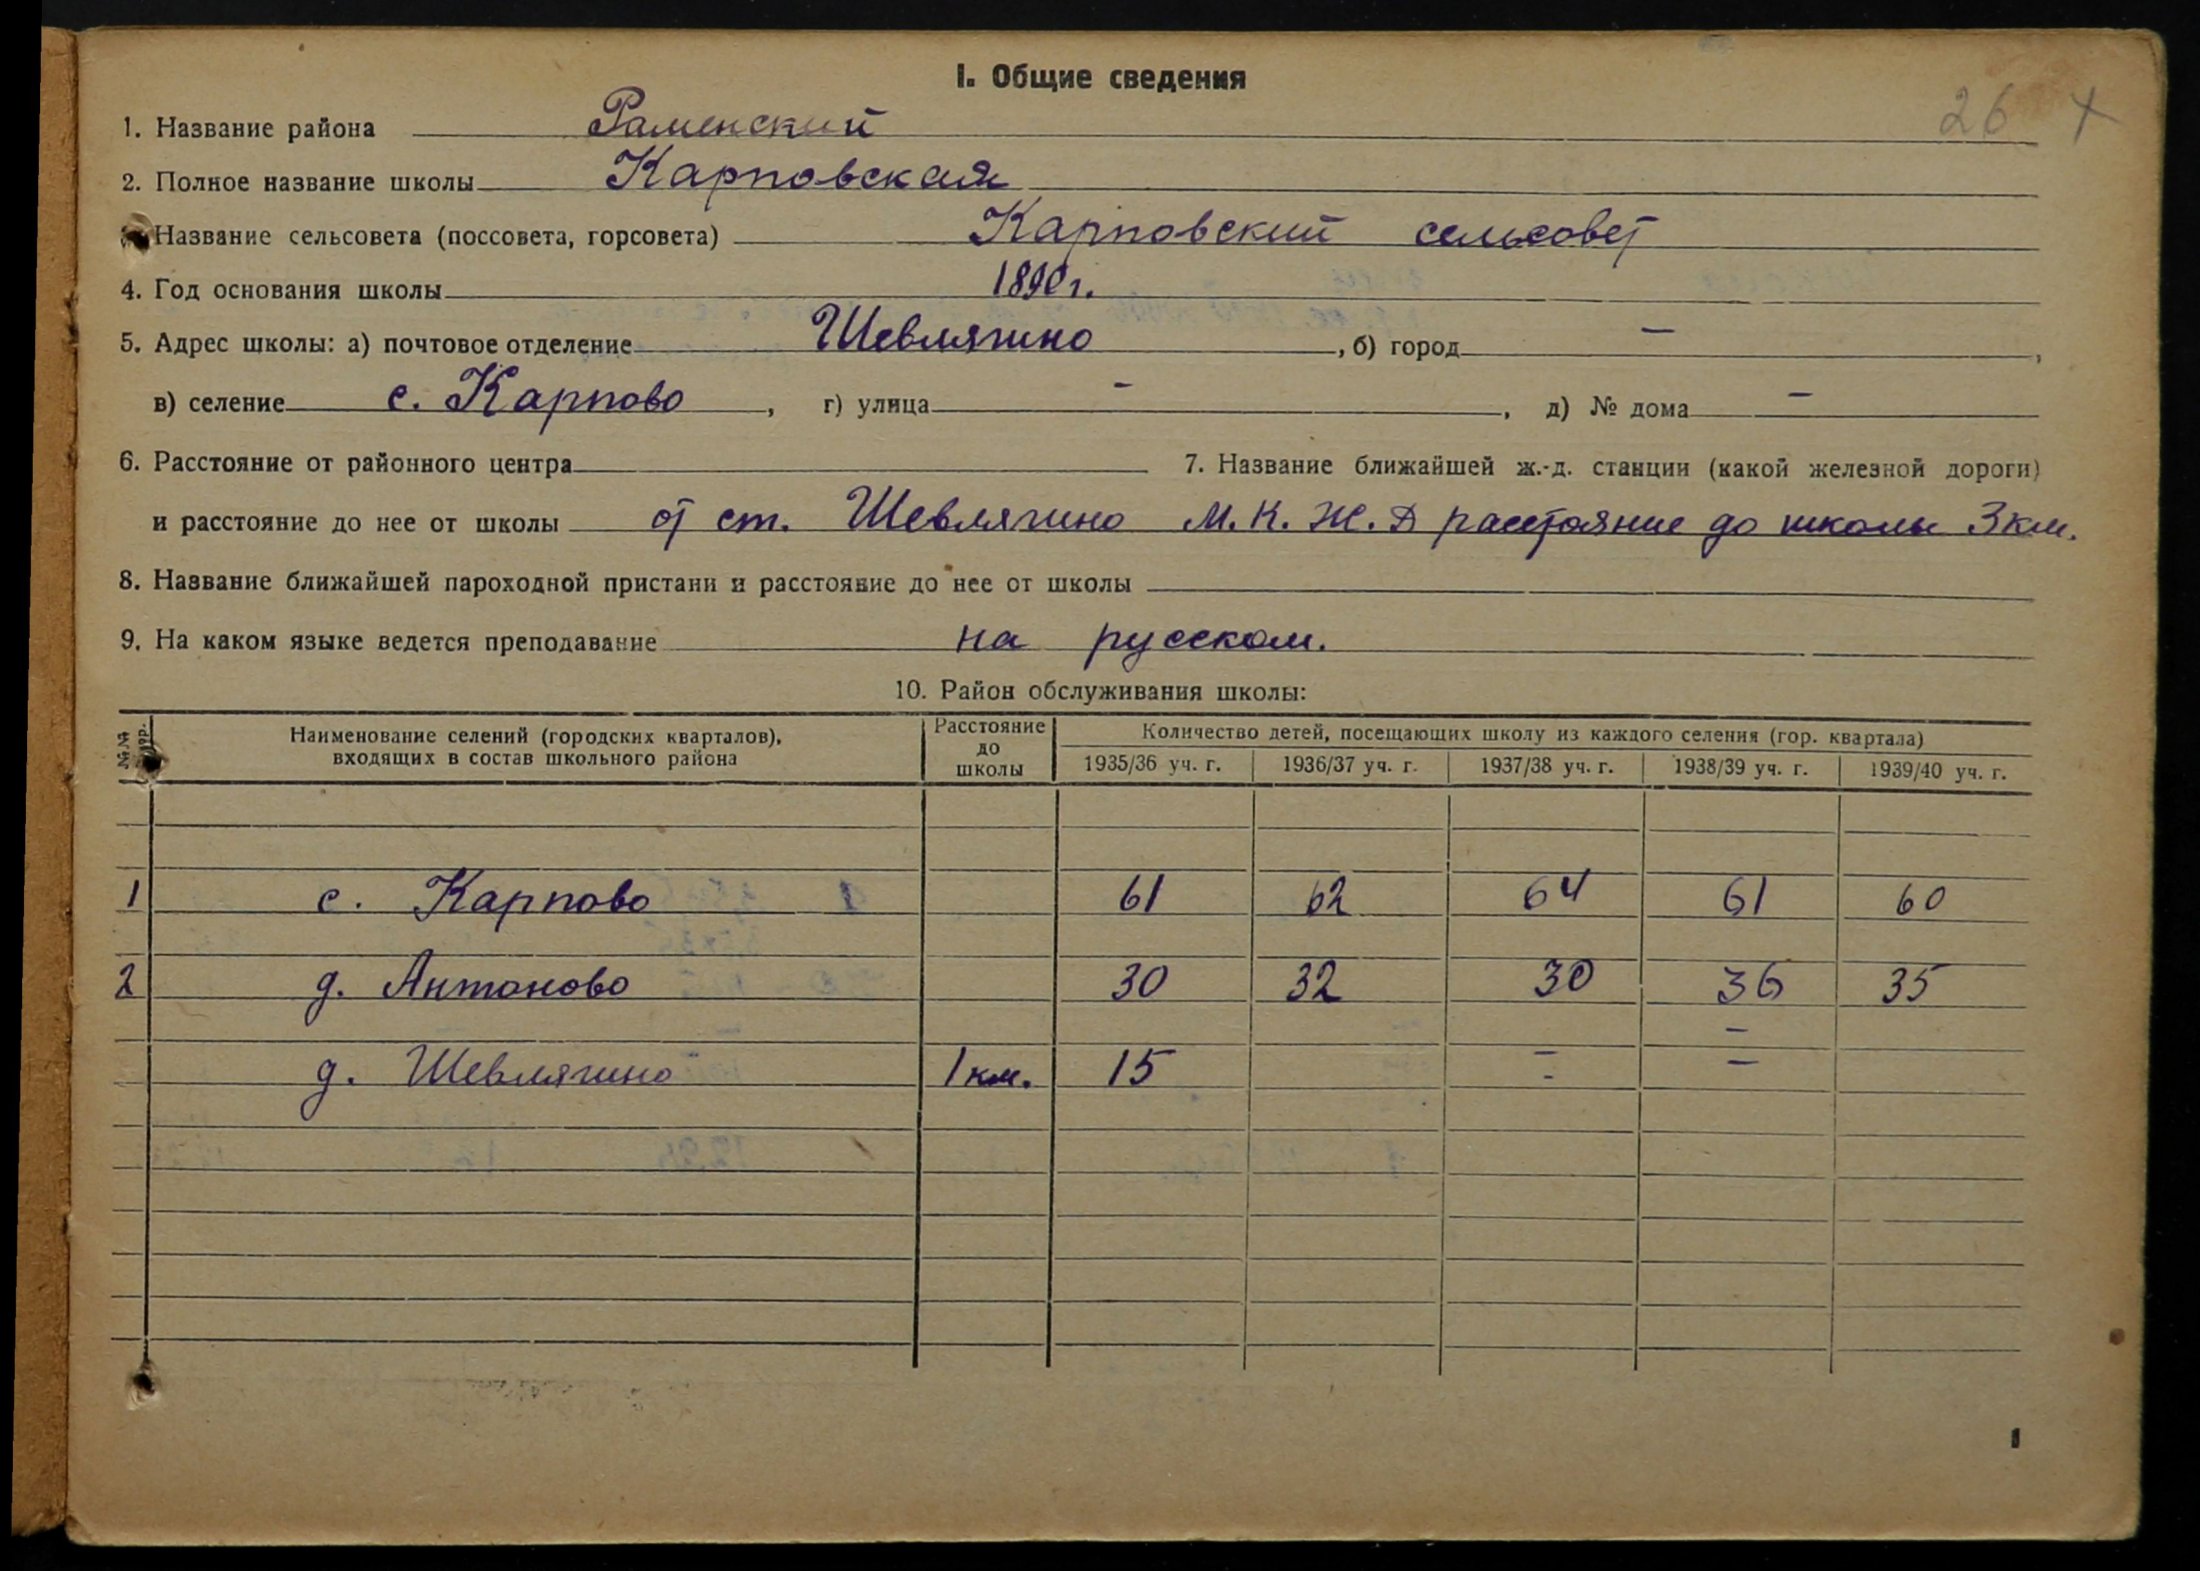 I. Общие сведения
26
1. Название района Раменский
2. Полное название школы Карповская
Название сельсовета (поссовета, горсовета) Карповский сельсовет
4. Год основания школы 1890 г.
5. Адрес школы: а) почтовое отделение Шевлягино, б) город —,
в) селение с. Карпово, г) улица —, д) № дома —
6. Расстояние от районного центра 7. Название ближайшей ж.-д. станции (какой железной дороги)
и расстояние до нее от школы от ст. Шевлягино М. К. Ж. Д расстояние до школы 3 км.
8. Название ближайшей пароходной пристани и расстояние до нее от школы
9. На каком языке ведется преподавание на русском.
10. Район обслуживания школы:
№№ Наименование селений (городских кварталов), входящих в состав школьного района Расстояние до школы Количество детей, посещающих школу из каждого селения (гор. квартала)
1935/36 уч. г. 1936/37 уч. г. 1937/38 уч. г. 1938/39 уч. г. 1939/40 уч. г.
1 с. Карпово 61 62 64 61 60
2 д. Антоново 30 32 30 36 35
д. Шевлягино 1 км. 15 — —
1